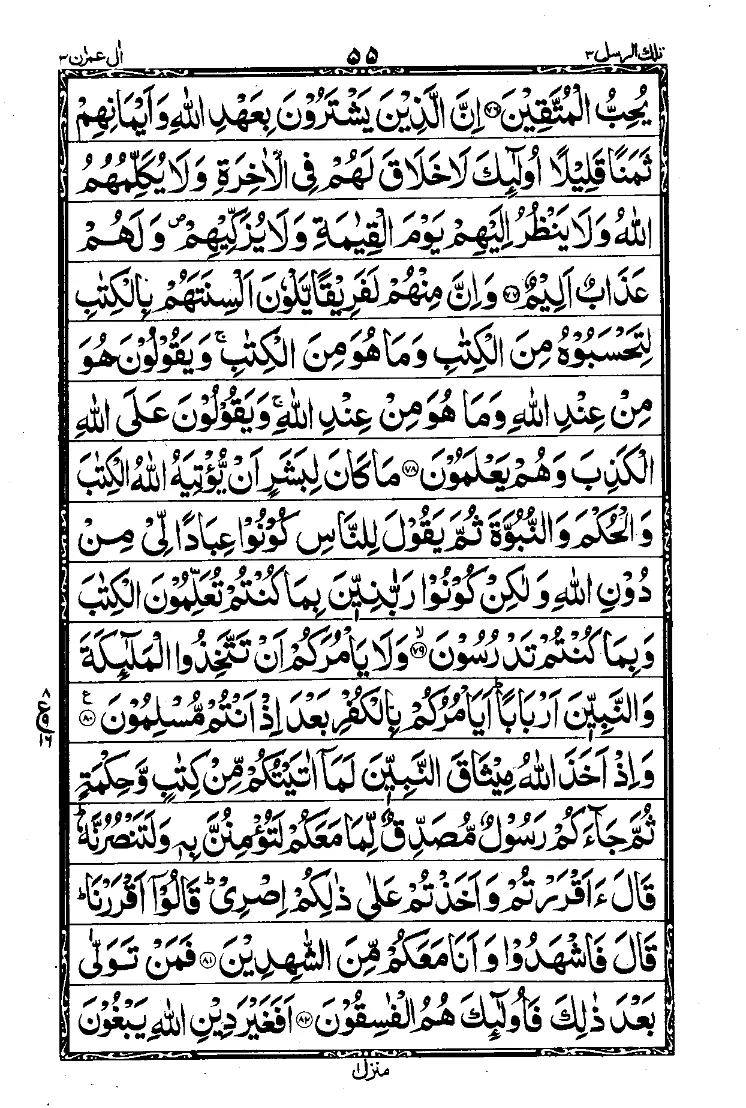 تلك الرسل ٣
٥٥
اٰل عمرٰن ٣
يُحِبُّ الْمُتَّقِيْنَ ﴿٧٦﴾ اِنَّ الَّذِيْنَ يَشْتَرُوْنَ بِعَهْدِ اللّٰهِ وَاَيْمَانِهِمْ
ثَمَنًا قَلِيْلًا اُولٰٓئِكَ لَا خَلَاقَ لَهُمْ فِى الْاٰخِرَةِ وَلَا يُكَلِّمُهُمُ
اللّٰهُ وَلَا يَنْظُرُ اِلَيْهِمْ يَوْمَ الْقِيٰمَةِ وَلَا يُزَكِّيْهِمْ ۖ وَلَهُمْ
عَذَابٌ اَلِيْمٌ ﴿٧٧﴾ وَاِنَّ مِنْهُمْ لَفَرِيْقًا يَّلْوٗنَ اَلْسِنَتَهُمْ بِالْكِتٰبِ
لِتَحْسَبُوْهُ مِنَ الْكِتٰبِ وَمَا هُوَ مِنَ الْكِتٰبِ ۚ وَيَقُوْلُوْنَ هُوَ
مِنْ عِنْدِ اللّٰهِ وَمَا هُوَ مِنْ عِنْدِ اللّٰهِ ۚ وَيَقُوْلُوْنَ عَلَى اللّٰهِ
الْكَذِبَ وَهُمْ يَعْلَمُوْنَ ﴿٧٨﴾ مَا كَانَ لِبَشَرٍ اَنْ يُّؤْتِيَهُ اللّٰهُ الْكِتٰبَ
وَالْحُكْمَ وَالنُّبُوَّةَ ثُمَّ يَقُوْلَ لِلنَّاسِ كُوْنُوْا عِبَادًا لِّىْ مِنْ
دُوْنِ اللّٰهِ وَلٰكِنْ كُوْنُوْا رَبّٰنِيّٖنَ بِمَا كُنْتُمْ تُعَلِّمُوْنَ الْكِتٰبَ
وَبِمَا كُنْتُمْ تَدْرُسُوْنَ ﴿٧٩﴾ۙ وَلَا يَاْمُرَكُمْ اَنْ تَتَّخِذُوا الْمَلٰٓئِكَةَ
وَالنَّبِيّٖنَ اَرْبَابًا ؕ اَيَاْمُرُكُمْ بِالْكُفْرِ بَعْدَ اِذْ اَنْتُمْ مُّسْلِمُوْنَ ﴿٨٠﴾ ع
٨ ع ٩ ١٦
وَاِذْ اَخَذَ اللّٰهُ مِيْثَاقَ النَّبِيّٖنَ لَمَاۤ اٰتَيْتُكُمْ مِّنْ كِتٰبٍ وَّحِكْمَةٍ
ثُمَّ جَآءَكُمْ رَسُوْلٌ مُّصَدِّقٌ لِّمَا مَعَكُمْ لَتُؤْمِنُنَّ بِهٖ وَلَتَنْصُرُنَّهٗ ؕ
قَالَ ءَاَقْرَرْتُمْ وَاَخَذْتُمْ عَلٰى ذٰلِكُمْ اِصْرِىْ ؕ قَالُوْۤا اَقْرَرْنَا ؕ
قَالَ فَاشْهَدُوْا وَاَنَا مَعَكُمْ مِّنَ الشّٰهِدِيْنَ ﴿٨١﴾ فَمَنْ تَوَلّٰى
بَعْدَ ذٰلِكَ فَاُولٰٓئِكَ هُمُ الْفٰسِقُوْنَ ﴿٨٢﴾ اَفَغَيْرَ دِيْنِ اللّٰهِ يَبْغُوْنَ
منزل ١